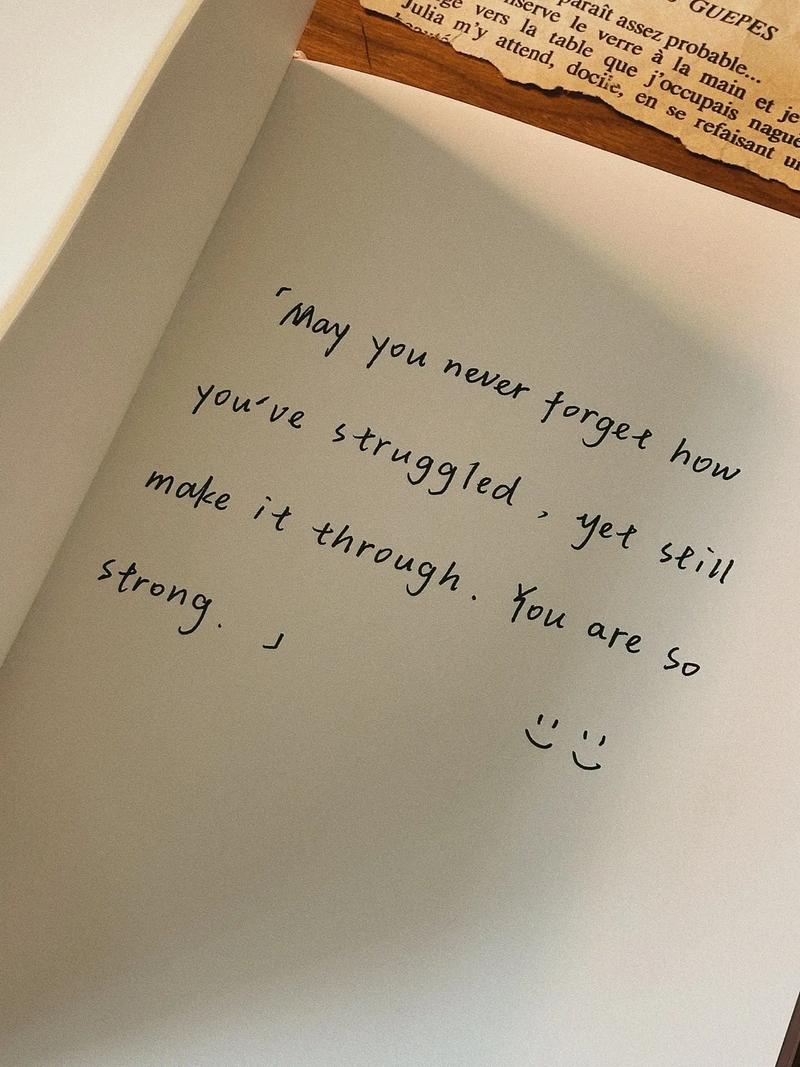 GUEPES
paraît assez probable...
nserve le verre à la main et je
vers la table que j'occupais
Julia m'y attend, docile, en se refaisant
「May you never forget how
you've struggled, yet still
make it through. You are so
strong. 」